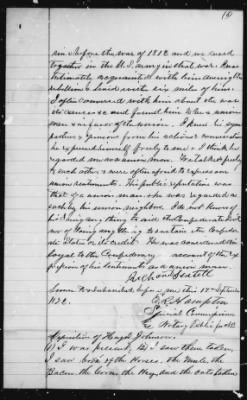 (6)
since before the war of 1812 and we served
together in the U.S. army in that war. I was
intimately acquainted with him during the
rebellion & lived with six miles of him.
I often conversed with him about the war
its causes &c and found him to be a union
man in favor of the union.
from his actions
he expressed himself freely to me & I think he
regarded me as a union man. We talked freely
to each other & were often afraid to express our
union sentiments. His public reputation was
that of a union man. He was regarded as
such by his union neighbors. I do not know of
his doing any thing to aid the Confederate
nor of doing any thing to sustain the Confederate
States or its credit. He was considered
loyal to the Confederacy on account of the ex-
pression of his sentiments as a union man.
Sworn to & subscribed before me this 17th September
1872.
E. R. Hampton
Special Commissioner
& Notary Public for NC
Deposition of Hugh Johnson.
I was present, & I saw them taken,
I saw both of the Horses, the Mule, the
Bacon, the Corn, the Hay, and the Oats taken